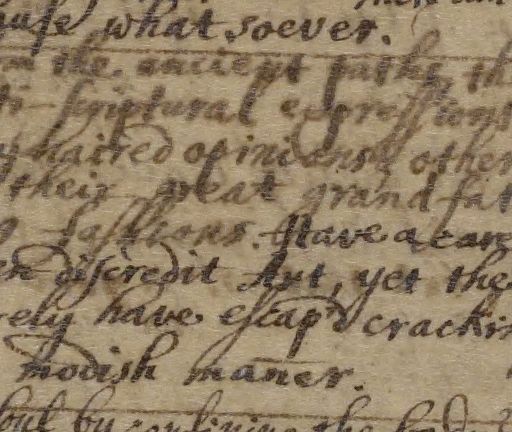 what soever.
the ancient paths, th
scriptural expressions
haired opinions, other
their great grand fat
fashions. Have a care
discredit Art, yet the
ely have escap'd crackin
modish maner.
but by confining the